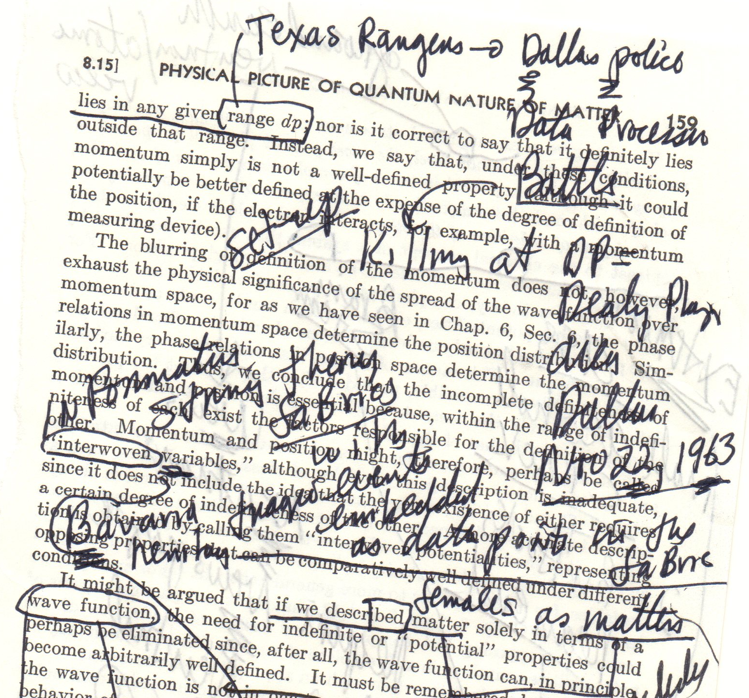 Texas Rangers → Dallas police
8.15] PHYSICAL PICTURE OF QUANTUM NATURE OF MATTER 159
Data Processin
lies in any given range dp; nor is it correct to say that it definitely lies
outside that range. Instead, we say that, under these conditions,
momentum simply is not a well-defined property although it could
potentially be better defined at the expense of the degree of definition of
the position, if the electron interacts, for example, with a momentum
measuring device).
Killing at DP =
The blurring of definition of the momentum does not, however,
exhaust the physical significance of the spread of the wave function over
Dealy Plaza
momentum space, for as we have seen in Chap. 6, Sec. the phase
relations in momentum space determine the position distribution. Sim-
ilarly, the phase relations in position space determine the momentum
distribution. Thus, we conclude that the incomplete definiteness of
string fabrics
momentum and position is essential because, within the range of indefi-
niteness of each exist the factors responsible for the definition of the
other. Momentum and position might, therefore, perhaps be called
Nov 22, 1963
"interwoven variables," although even this description is inadequate,
since it does not include the idea that the very existence of either requires
a certain degree of indefiniteness of the other. A more accurate descrip-
Bavaria tragic event embedded
tion is obtained by calling them "interwoven potentialities," representing
Newton as data point in the fabric
opposing properties that can be comparatively well defined under different
conditions.
females as matters
It might be argued that if we described matter solely in terms of a
wave function, the need for indefinite or "potential" properties could
perhaps be eliminated since, after all, the wave function can, in principle,
become arbitrarily well defined. It must be remembered,
the wave function is not in
behavior of